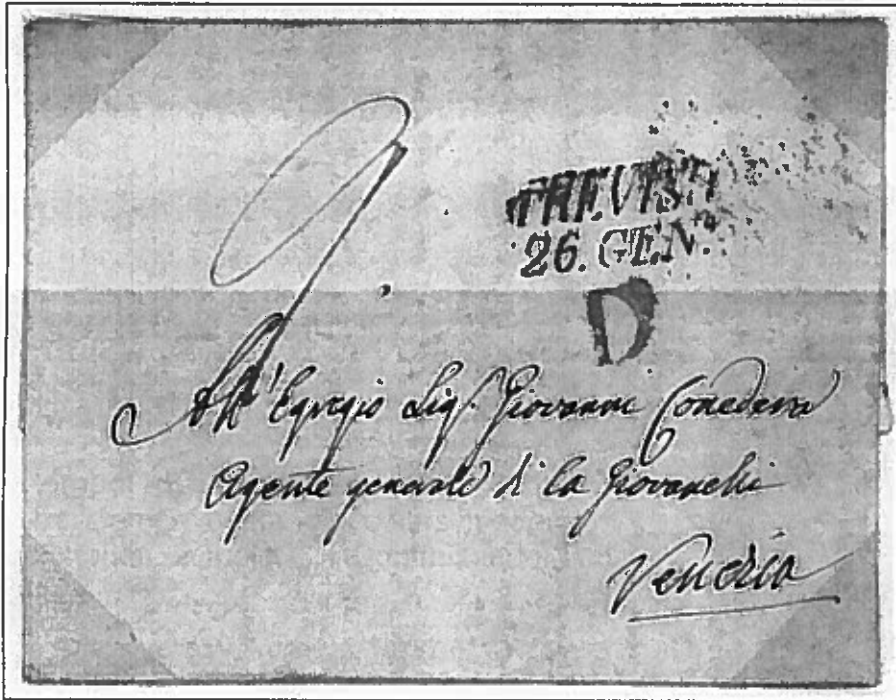 TREVISO
26. GEN.
D
All' Egregio Sig. Giovanni
Agente generale di Ca Giovanelli
Venezia